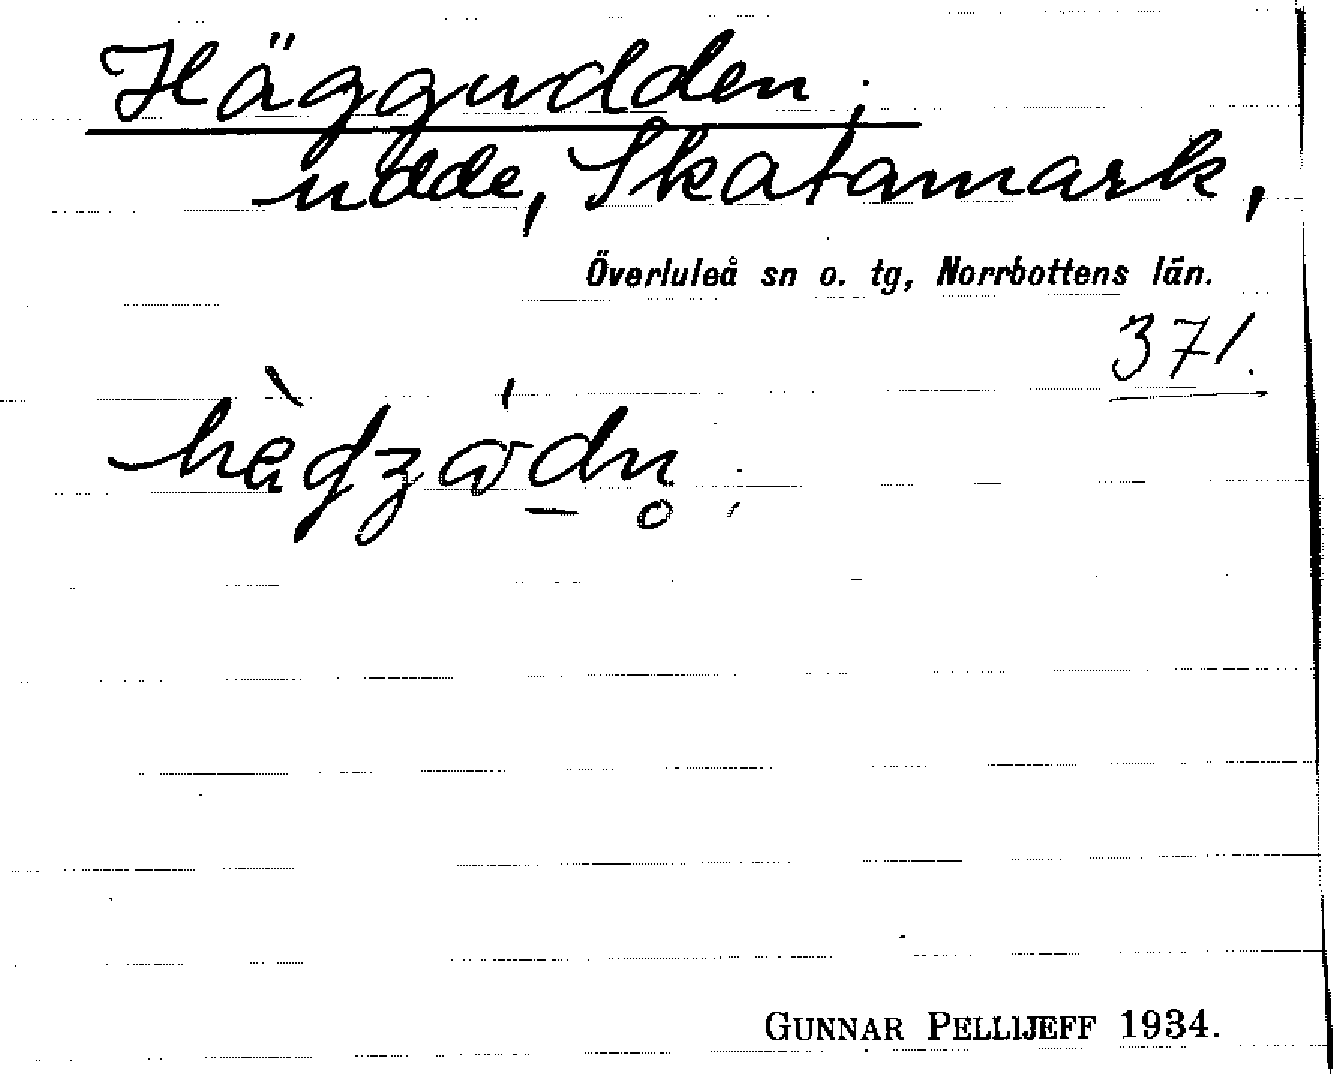 Häggudden,
udde, Skatamark,
Överluleå sn o. tg, Norrbottens län.
371.
GUNNAR PELLIJEFF 1934.